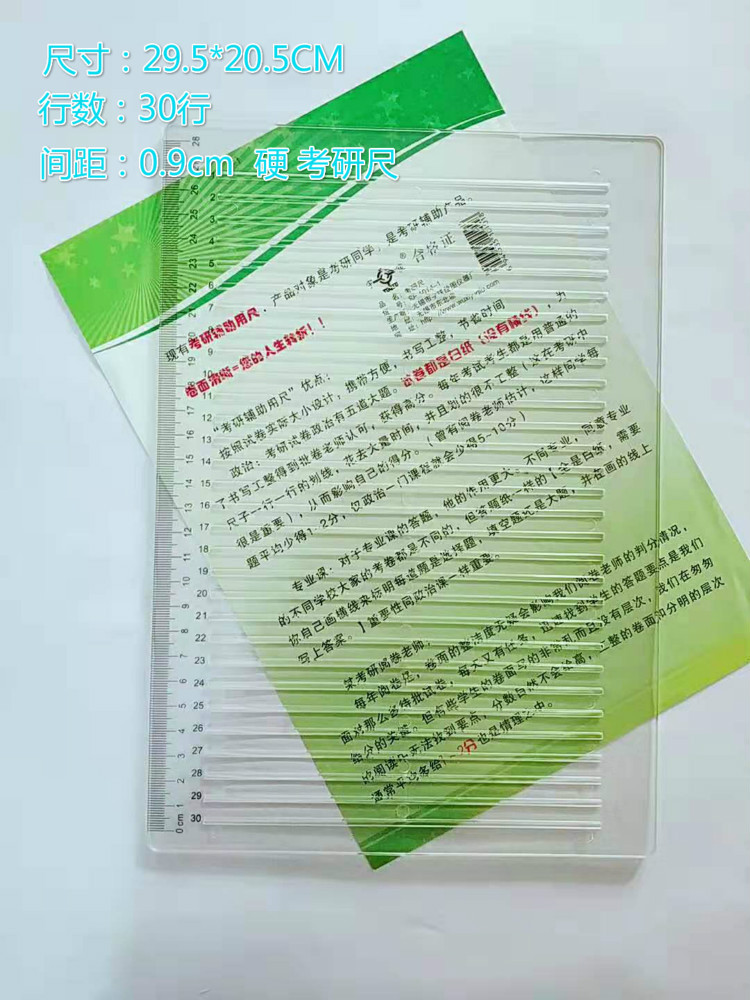 尺寸：29.5*20.5CM
行数：30行
间距：0.9cm 硬 考研尺
合格证
现有考研辅助用尺，产品对象是考研同学，是考研辅助产品。
卷面清晰=您的人生转折！！
“考研辅助用尺”优点：
按照试卷实际大小设计，携带方便，书写工整，节省时间
政治：考研试卷政治有五道大题。试卷都是白纸（没有横线），为
了书写工整得到批卷老师认可，获得高分。每年考试考生都是用普通的
尺子一行一行的划线，花去大量时间，并且划的很不工整（这在考研中
很是重要），从而影响自己的得分。（曾有阅卷老师估计，这样同学每
题平均少得1-2分，仅政治一门课程就会少得5-10分）
专业课：对于专业课的答题，他的作用更大。不同专业，同意专业
的不同学校大家的考卷都是不同的，但答题纸一样的【全是白纸，需要
你自己画横线来标明每道题是选择题，填空题还是大题，并在画的线上
写上答案。】重要性同政治课一样重要。
某考研阅卷老师：
每年阅卷是，卷面的整洁度无疑会影响我们阅卷老师的判分情况，
面对那么多待批试卷，每天又有任务，迅速找到学生的答题要点是我们
给分的关键。但有些学生的卷面写的非常乱而且没有层次，我们在匆匆
的阅读中无法找到要点，分数自然不会给高，工整的卷面和分明的层次
通常平均多给1-2分也是情理之中。
28
26
25
24
23
22
21
20
19
18
17
16
15
14
13
12
11
10
9
8
7
6
5
4
3
2
1
0 cm
1
2
3
4
5
9
10
11
12
13
14
15
16
17
18
19
20
21
22
23
24
25
26
27
28
29
30